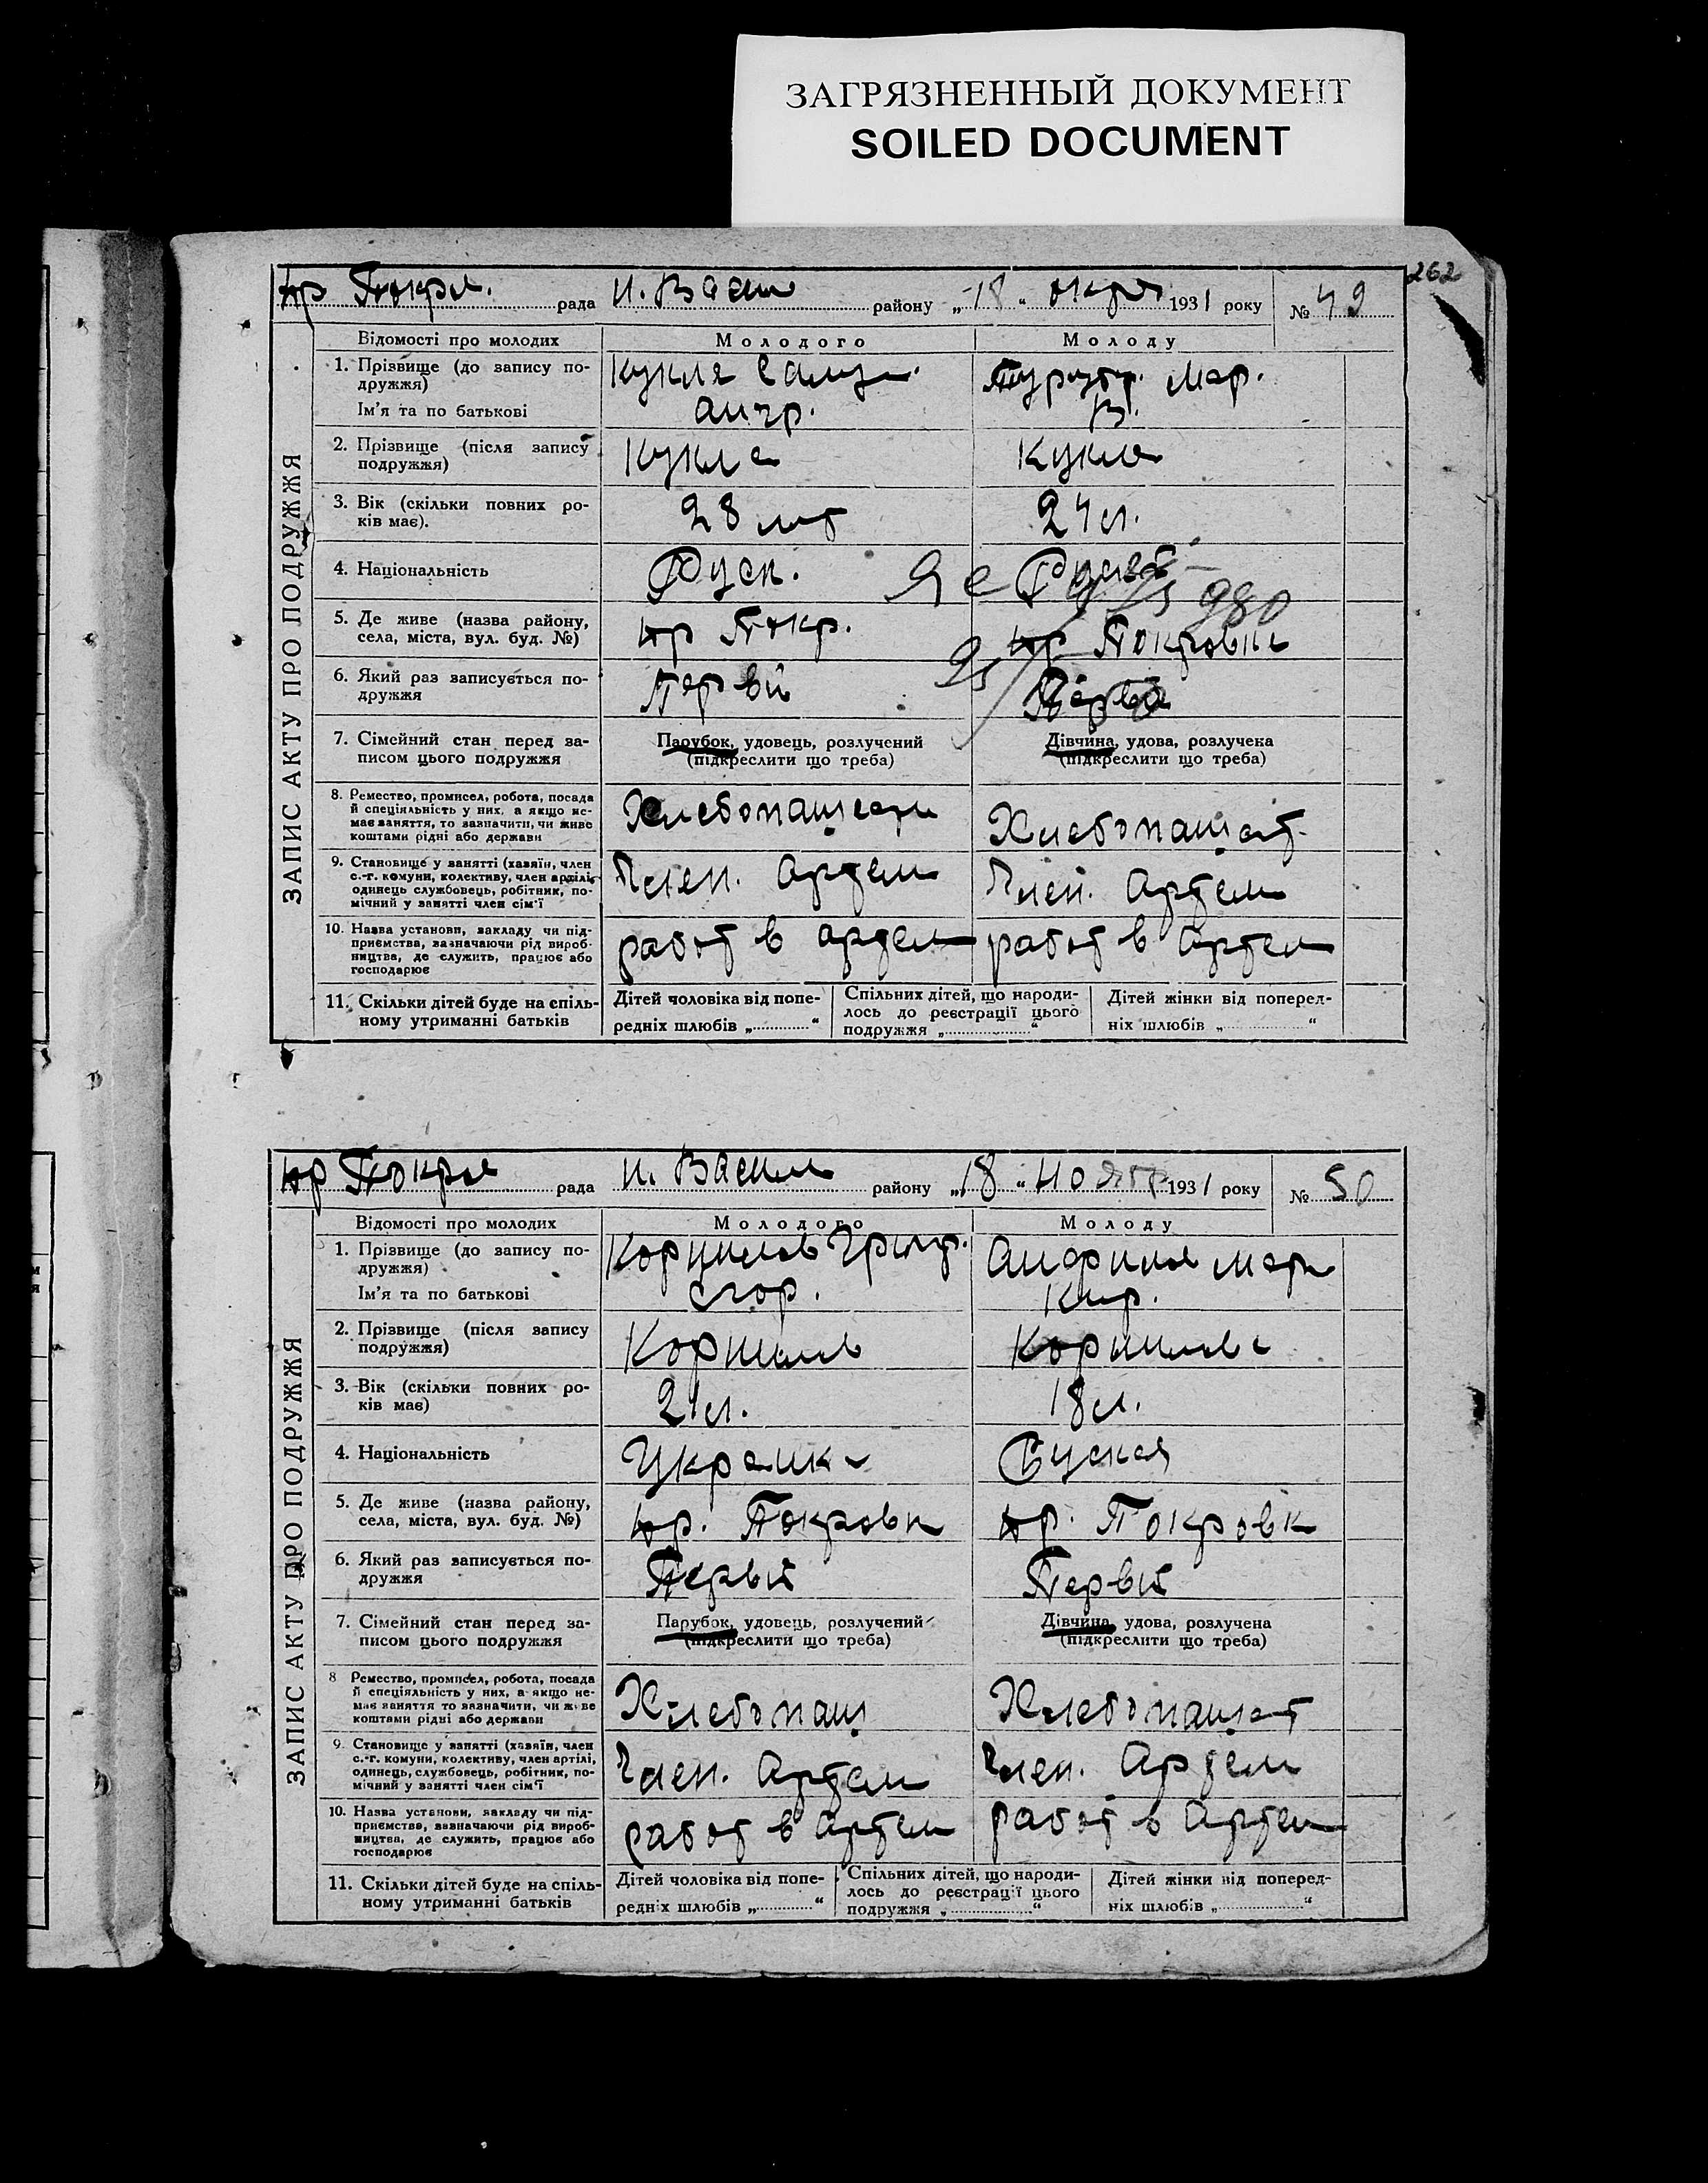 ЗАГРЯЗНЕННЫЙ ДОКУМЕНТ
SOILED DOCUMENT
262
Нр Покров. рада Н. Васил району „18“ октяб 1931 року № 49
ЗАПИС АКТУ ПРО ПОДРУЖЖЯ
Відомості про молодих Молодого Молоду
1. Прізвище (до запису по-
дружжя)
Ім'я та по батькові
Кукла
Мар.
2. Прізвище (після запису
подружжя)
Кукла Кукла
3. Вік (скільки повних ро-
ків має).
28 лет 24 л.
4. Національність Руск.
980
5. Де живе (назва району,
села, міста, вул. буд. №)
Нр Покр. Нр Покровк
6. Який раз записується по-
дружжя
Первій
7. Сімейний стан перед за-
писом цього подружжя
Парубок, удовець, розлучений
(підкреслити що треба)
Дівчина, удова, розлучена
(підкреслити що треба)
8. Ремество, промисел, робота, посада
й спеціяльність у них, а якщо не-
має заняття, то зазначити, чи живе
коштами рідні або держави
Хлебопашест
9. Становище у занятті (хазяїн, член
с.-г. комуни, колективу, член артілі,
одинець службовець, робітник, по-
мічний у занятті член сім'ї
Член. Артели Член. Артели
10. Назва установи, закладу чи під-
приємства, зазначаючи рід вироб-
ництва, де служить, працює або
господарює
работ в артел работ в Артел
11. Скільки дітей буде на спіль-
ному утриманні батьків
Дітей чоловіка від попе-
редніх шлюбів „ “
Спільних дітей, що народи-
лось до реєстрації цього
подружжя „ “
Дітей жінки від поперед-
ніх шлюбів „ “
Нр Покров рада Н. Васил району „18“ Нояб 1931 року № 50
ЗАПИС АКТУ ПРО ПОДРУЖЖЯ
Відомості про молодих Молодого Молоду
1. Прізвище (до запису по-
дружжя)
Ім'я та по батькові
Корнилов Григ.
Егор.
Мари
Кир.
2. Прізвище (після запису
подружжя)
Корнилов Корнилова
3. Вік (скільки повних ро-
ків має)
21 л. 18 л.
4. Національність Руская
5. Де живе (назва району,
села, міста, вул. буд. №)
Нр. Покровк Нр. Покровк
6. Який раз записується по-
дружжя
Первій Первій
7. Сімейний стан перед за-
писом цього подружжя
Парубок, удовець, розлучений
(підкреслити що треба)
Дівчина, удова, розлучена
(підкреслити що треба)
8 Ремество, промисел, робота, посада
й спеціяльність у них, а якщо не-
має заняття то зазначити, чи живе
коштами рідні або держави
Хлебопаш Хлебопашест
9. Становище у занятті (хазяїн, член
с.-г. комуни, колективу, член артілі,
одинець, службовець, робітник, по-
мічний у занятті член сім'ї
Член. Артели Член. Артели
10. Назва установи, закладу чи під-
приємства, зазначаючи рід вироб-
ництва, де служить, працює або
господарює
работ в Артел работ в Артел
11. Скільки дітей буде на спіль-
ному утриманні батьків
Дітей чоловіка від попе-
редніх шлюбів „ “
Спільних дітей, що народи-
лось до реєстрації цього
подружжя „ “
Дітей жінки від поперед-
ніх шлюбів „ “